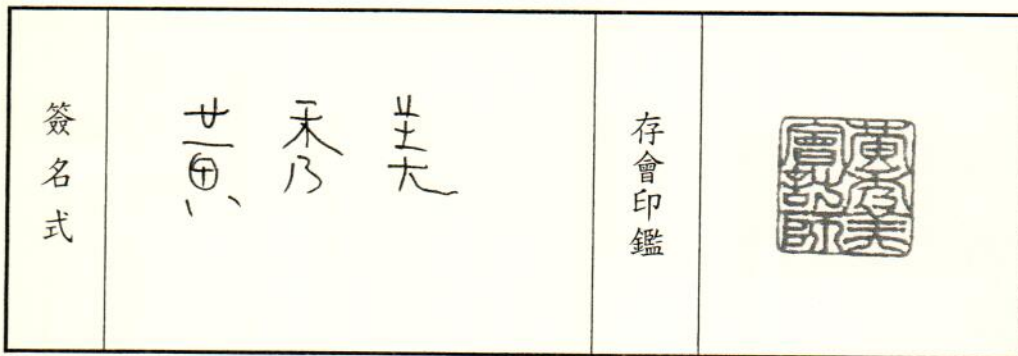 簽名式
黃秀美
存會印鑑
黃秀美
實計師